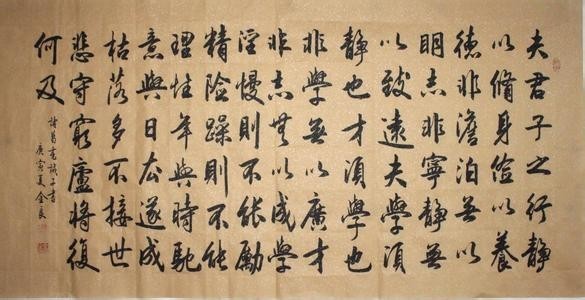 夫君子之行靜
以脩身儉以養
德非澹泊無以
明志非寧靜無
以致遠夫學須
靜也才須學也
非學無以廣才
非志無以成學
淫慢則不能勵
精險躁則不能
理性年與時馳
意與日去遂成
枯落多不接世
悲守窮廬將復
何及
諸葛亮誡子書
庚寅夏金良